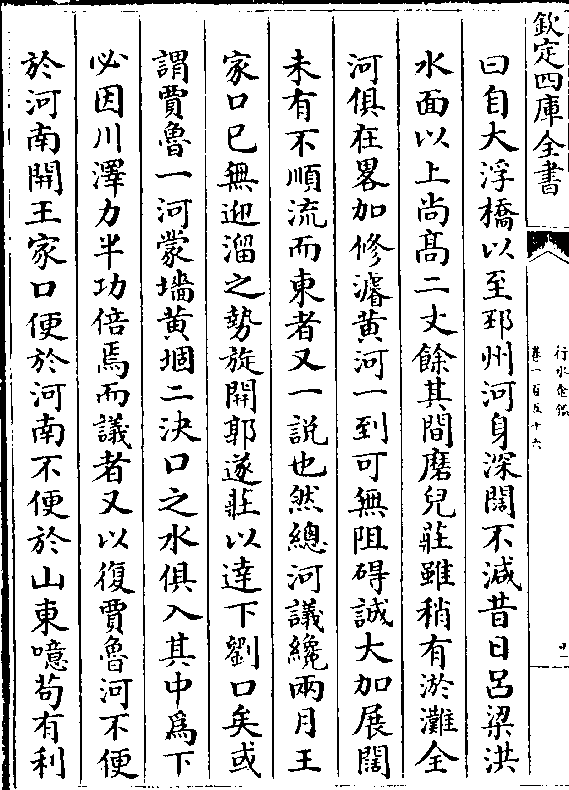 欽定四庫全書
行水金鑑
卷一百五十六
曰自大浮橋以至邳州河身深闊不減昔日呂梁洪
水面以上尚髙二丈餘其間磨兒莊雖稍有淤灘全
河俱在畧加修濬黄河一到可無阻碍誠大加展闊
未有不順流而東者又一説也然總河議纔兩月王
家口已無迎溜之勢旋開郭遂莊以達下劉口矣或
謂賈魯一河蒙墻黄堌二決口之水俱入其中為下
必因川澤力半功倍焉而議者又以復賈魯河不便
於河南開王家口便於河南不便於山東噫苟有利